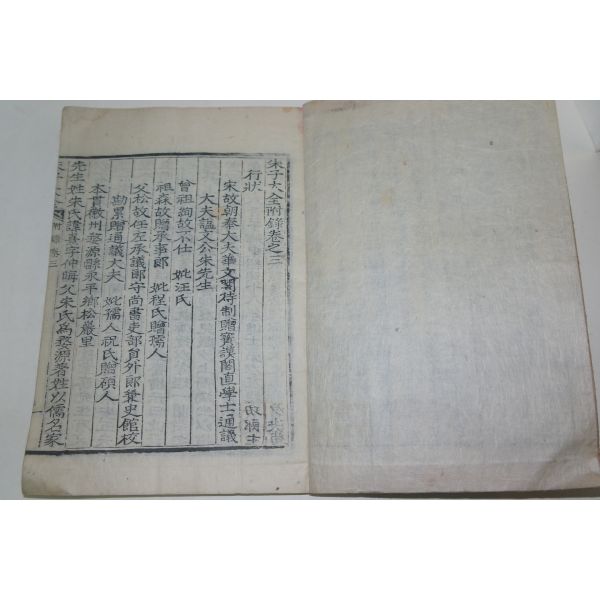 朱子大全附錄卷之三
行狀
宋故朝奉大夫華文閣待制贈寶謨閣直學士通議
大夫諡文公朱先生
曾祖絢故不仕 妣汪氏
祖森故贈承事郎 妣程氏贈孺人
父松故任左承議郎守尚書吏部員外郎兼史館校
勘累贈通議大夫 妣孺人祝氏贈碩人
本貫徽州婺源縣永平鄉松巖里
先生姓朱氏諱熹字仲晦父朱氏爲婺源著姓以儒名家
附錄卷三